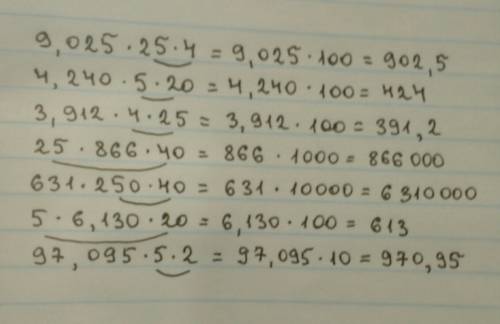 9,025·25·4 = 9,025·100 = 902,5
4,240·5·20 = 4,240·100 = 424
3,912·4·25 = 3,912·100 = 391,2
25·866·40 = 866·1000 = 866000
631·250·40 = 631·10000 = 6310000
5·6,130·20 = 6,130·100 = 613
97,095·5·2 = 97,095·10 = 970,95